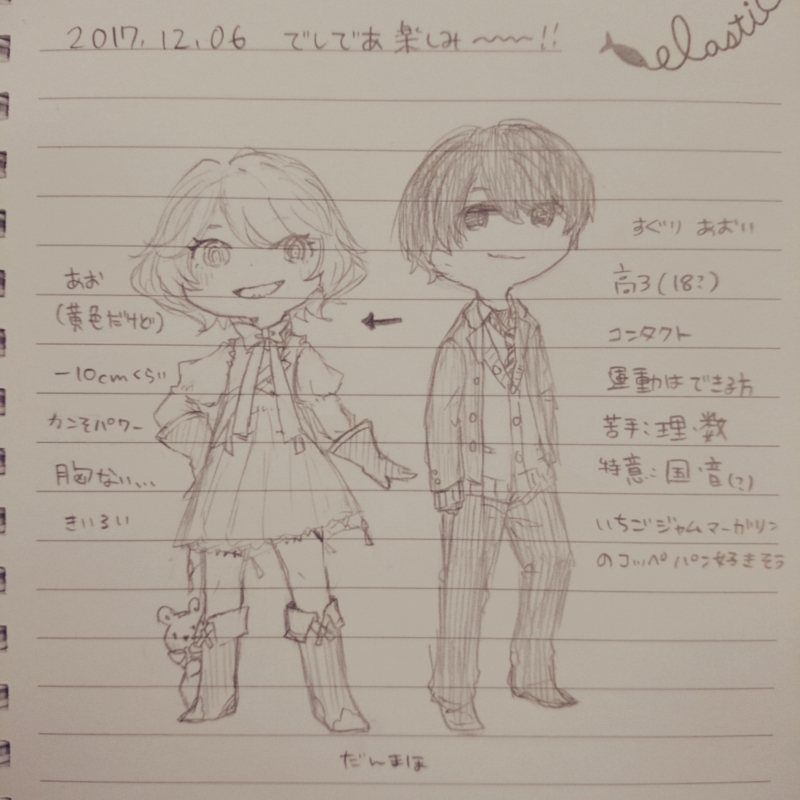 2017.12.06 でしであ 楽しみ〜〜〜!!
elastic
あお
(黄色だけど)
－10cmくらい
カンそパワー
胸ない、、、
きいろい
すぐり あおい
高3(18?)
コンタクト
運動はできる方
苦手:理・数
特意:国・音(?)
いちごジャムマーガリン
のコッペパン好きそう
だんまほ